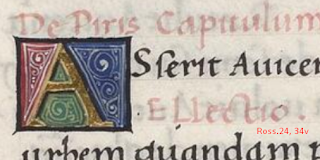 De Piris Capitulum
ASserit Auicen
Ellectio.
Ross.24, 34v
urbem quandam